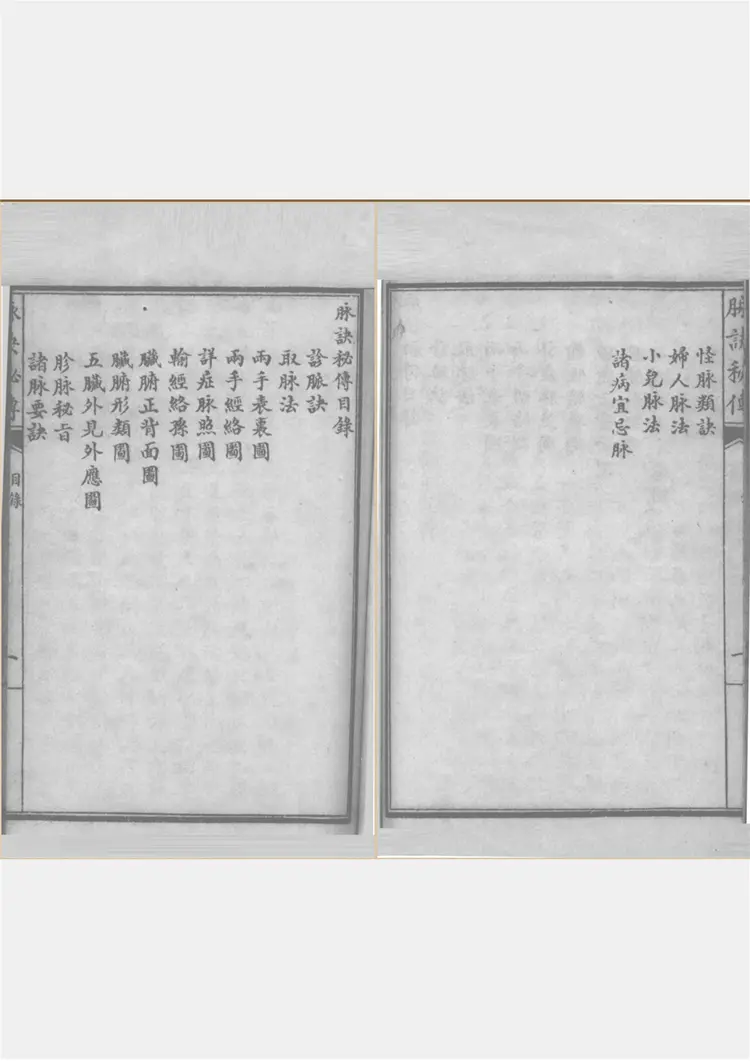 脉訣秘傳目錄
診脈訣
取脈法
兩手表裏圖
兩手經絡圖
詳症脉照圖
輸經絡孫圖
臟腑正背面圖
臟腑形類圖
五臟外見外應圖
胗脉秘旨
諸脉要訣
脉訣秘傳
目錄
一
脉訣秘傳
怪脉類訣
婦人脉法
小兒脉法
諸病宜忌脉
一